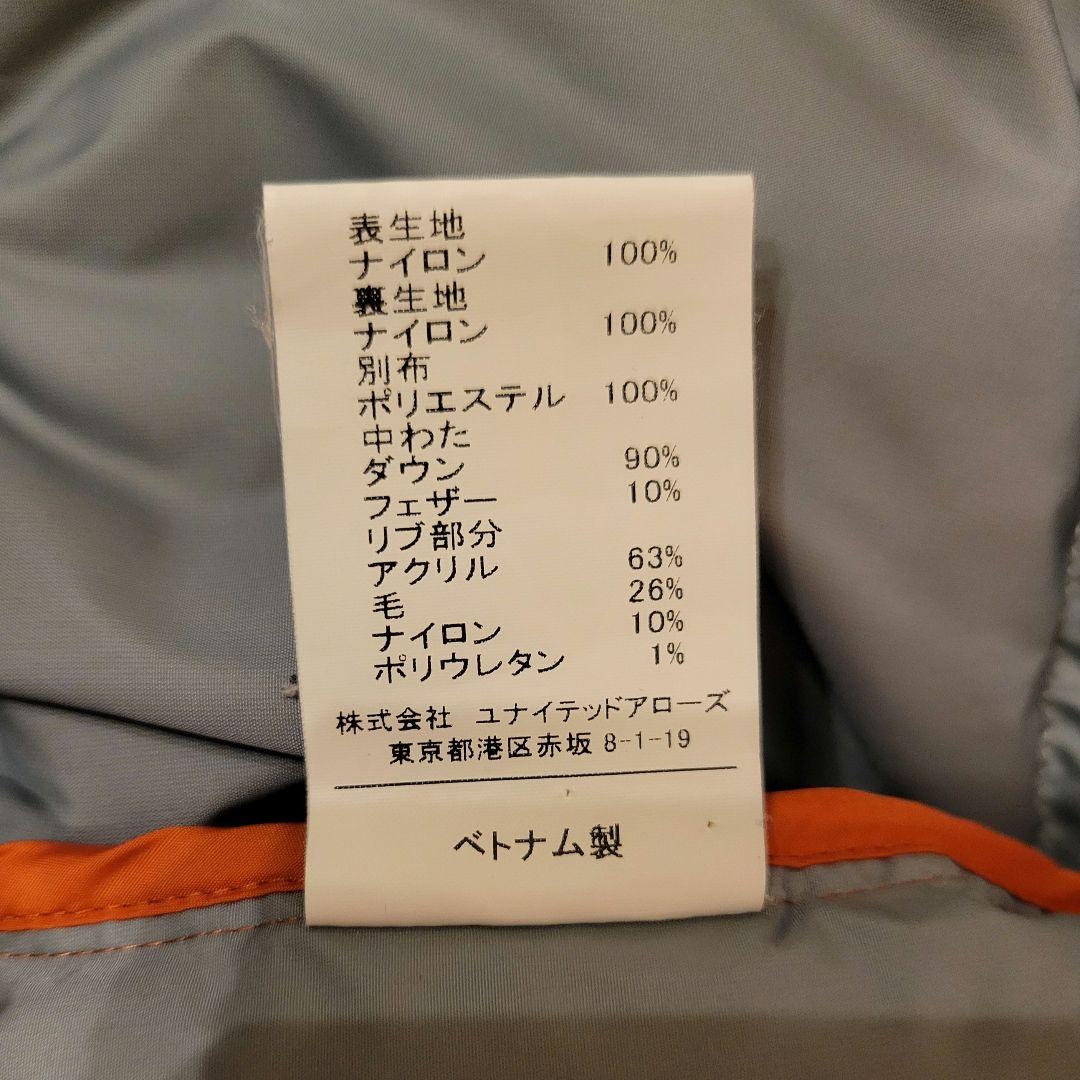 表生地
ナイロン 100%
裏生地
ナイロン 100%
別布
ポリエステル 100%
中わた
ダウン 90%
フェザー 10%
リブ部分
アクリル 63%
毛 26%
ナイロン 10%
ポリウレタン 1%
株式会社 ユナイテッドアローズ
東京都港区赤坂 8-1-19
ベトナム製